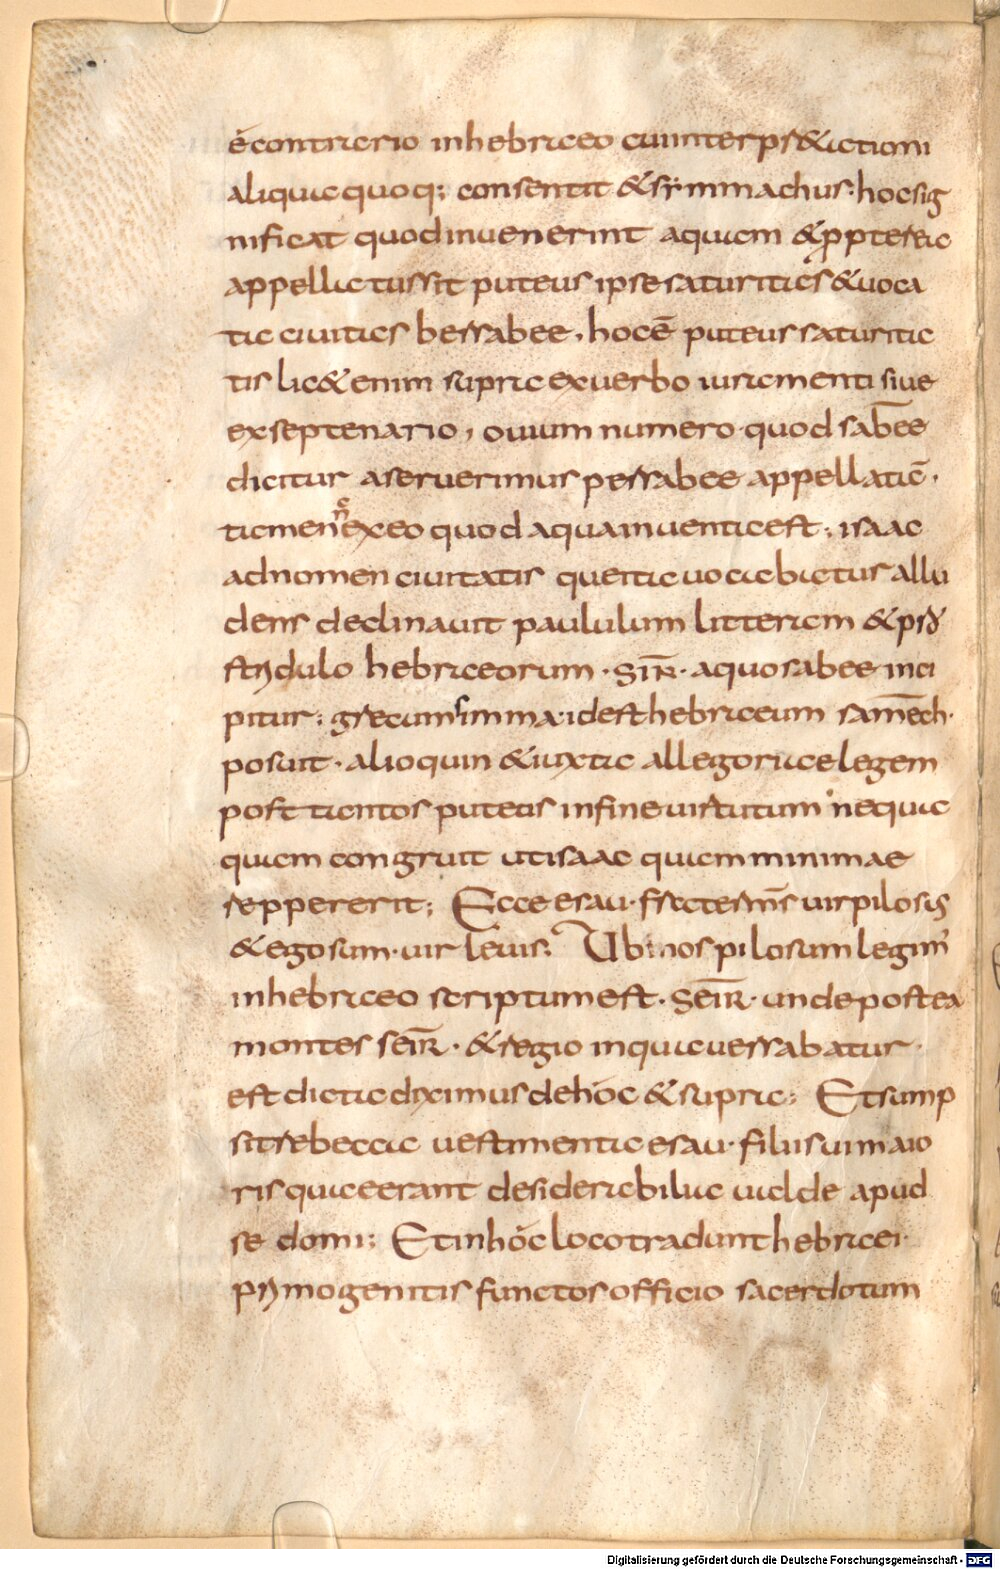 écontrario inhebraeo cuiinterpr&ationi
aliquaquoq; consentit &symmachus· hocsig
nificat quodinuenerint aquam &ppterea
appellatussit puteus ipsesaturitas &uoca
ta ciuitas bersabee, hocē puteus saturita
tis lic& enim supra exuerbo iuramenti siue
exseptenario, ouium numero· quod sabēe
dicitur aseruerimus persabee appellatā,
tamen nō exeo quod aqua inuenta est; isaac
adnomen ciuitatis que ita uocabatur allu
dens declinauit paululum litteram & p str
stridulo hebraeorum · SIN̄ · aquo sabee inci
pitur; grecum simma· idest hebraeum samēch·
posuit · alioquin &iuxta allegoriae legem
post tantos puteus infine uirtutum nequa
quam congruit utisaac quam minimae
reppererit; Ecce esau· frater m̄s uir pilosis
&ego sum· uir leuis; Ubi nos pilosum legim'
inhebraeo scriptum est · SEIR̄ · unde postea
montes seir̄ · &regio inqua uersabatur·
est dicta diximus dehóc & supra; Etsump
sit rebecca uestimenta esau· filii sui maio
ris quae erant desiderabilia ualde apud
se domi; Et inhóc loco tradunt hebraei·
primogenitis functos officio sacerdotum
Digitalisierung gefördert durch die Deutsche Forschungsgemeinschaft - DFG